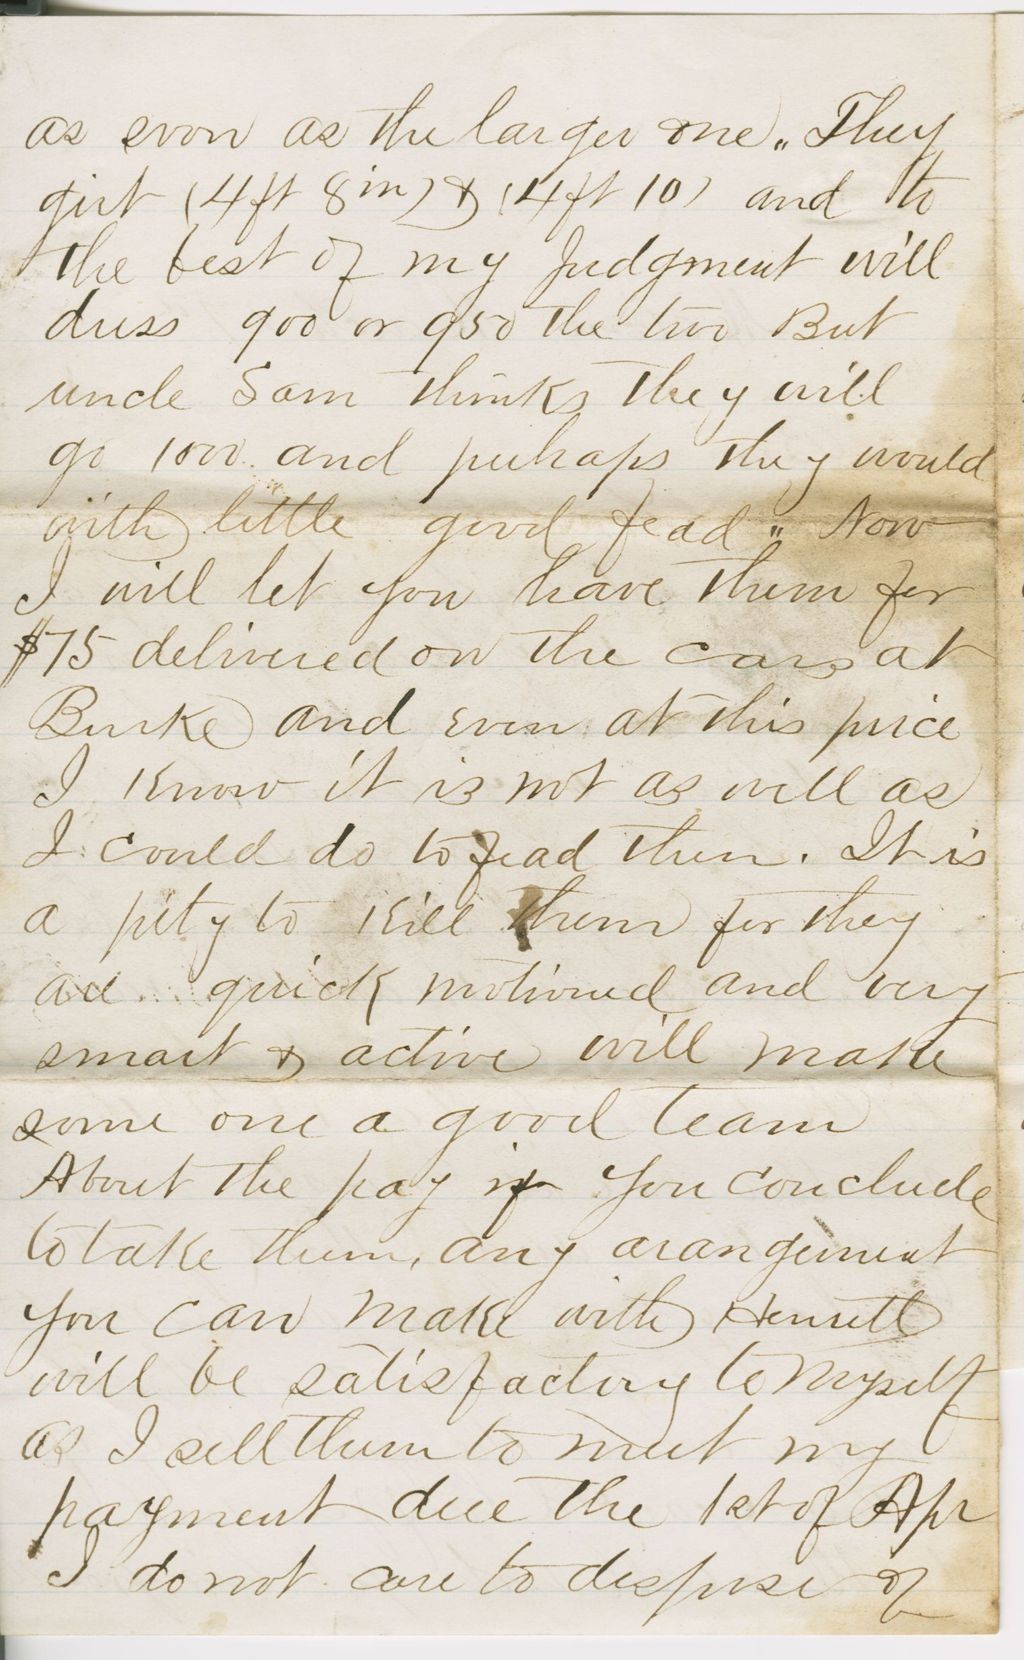 as soon as the larger one,, They
girt (4ft 8in) & (4ft 10) and to
the best of my Judgment will
dress 900 or 950 the two But
uncle Sam thinks they will
go 1000. and perhaps they would
with little good fead,, Now
I will let you have them for
$75 delivered on the cars at
Burke and even at this price
I know it is not as well as
I could do to fead them. It is
a pity to kill them for they
are quick motioned and very
smart & active will make
some one a good team
About the pay if you conclude
to take them, any arangement
you can make with
will be satisfactory to myself
as I sell them to meet my
payment due the 1st of Apr
I do not care to dispose of